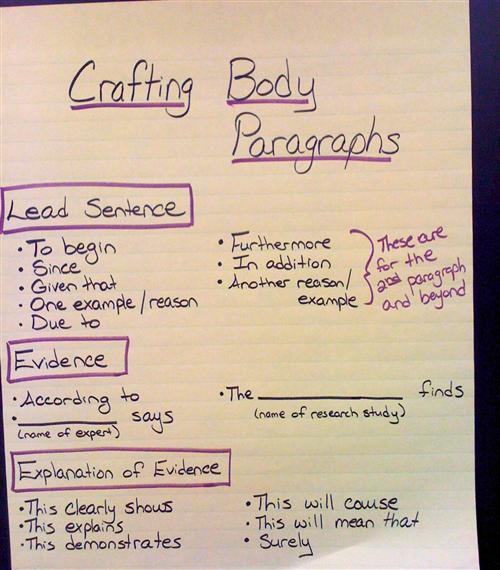 Crafting Body
Paragraphs
Lead Sentence
• To begin
• Since
• Given that
• One example/reason
• Due to
• Furthermore
• In addition
• Another reason/
example
These are
for the
2nd paragraph
and beyond
Evidence
• According to
• ____________ says
(name of expert)
• The ____________ finds
(name of research study)
Explanation of Evidence
• This clearly shows
• This explains
• This demonstrates
• This will cause
• This will mean that
• Surely